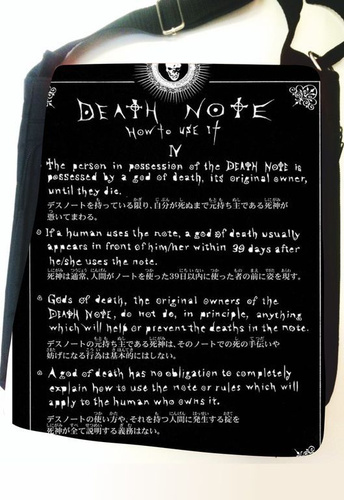 DEATH NOTE
HOW TO USE IT
IV
The person in possession of the DEATH NOTE is
possessed by a god of death, its original owner,
until they die.
デスノートを持っている限り、自分が死ぬまで元持ち主である死神が
憑いてまわる。
If a human uses the note, a god of death usually
appears in front of him/her within 39 days after
he/she uses the note.
死神は通常、人間がノートを使った39日以内に使った者の前に姿を現す。
Gods of death, the original owners of the
DEATH NOTE, do not do, in principle, anything
which will help or prevent the deaths in the note.
デスノートの元持ち主である死神は、そのノートでの死の手伝いや
妨げになる行為は基本的にはしない。
A god of death has no obligation to completely
explain how to use the note or rules which will
apply to the human who owns it.
デスノートの使い方や、それを持つ人間に発生する掟を
死神が全て説明する義務はない。